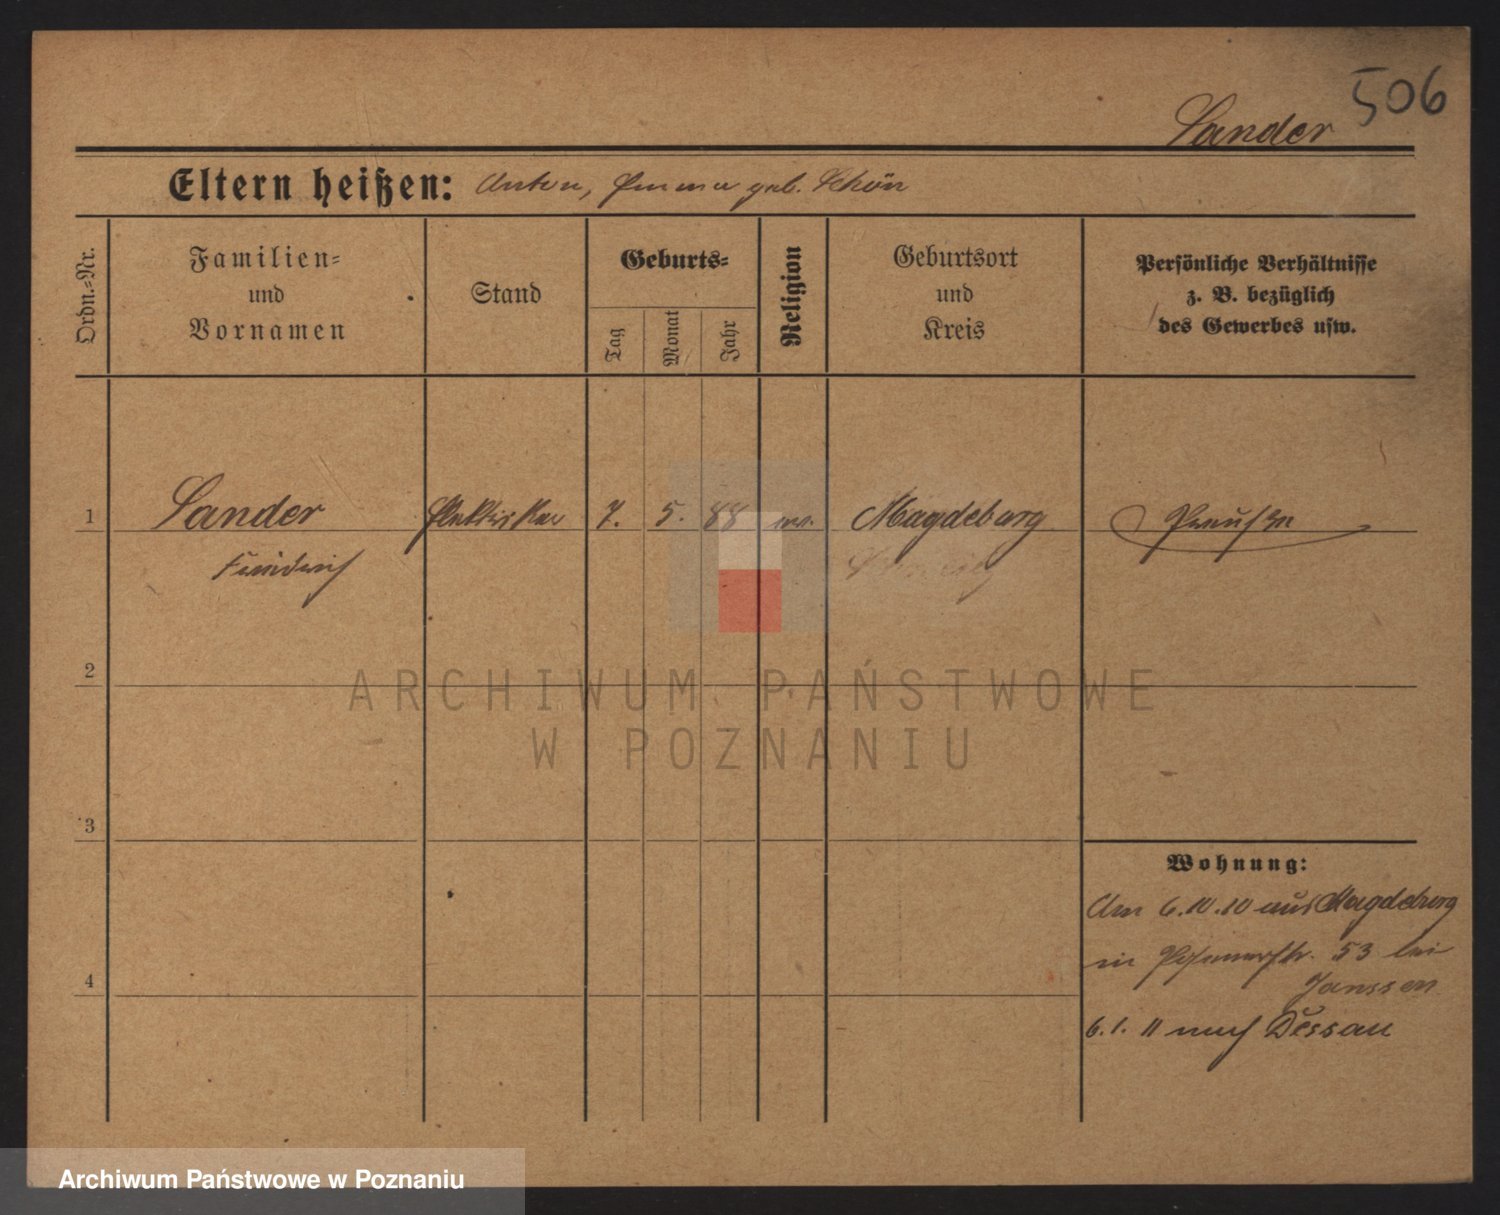 506
Sander
Eltern heißen: Anton, Emma geb. Schön
Ordn.-Nr.
Familien-
und
Vornamen
Stand
Geburts-
Tag
Monat
Jahr
Religion
Geburtsort
und
Kreis
Persönliche Verhältnisse
z. B. bezüglich
des Gewerbes usw.
1 Sander Elektriker 7. 5. 88 ev. Magdeburg Preuße
Friedrich
2
ARCHIWUM PAŃSTWOWE
W POZNANIU
3
Wohnung:
Am 6.10.10 aus Magdeburg
in Posenerstr. 53 bei
4
Janssen
6.1.11 nach Dessau
Archiwum Państwowe w Poznaniu